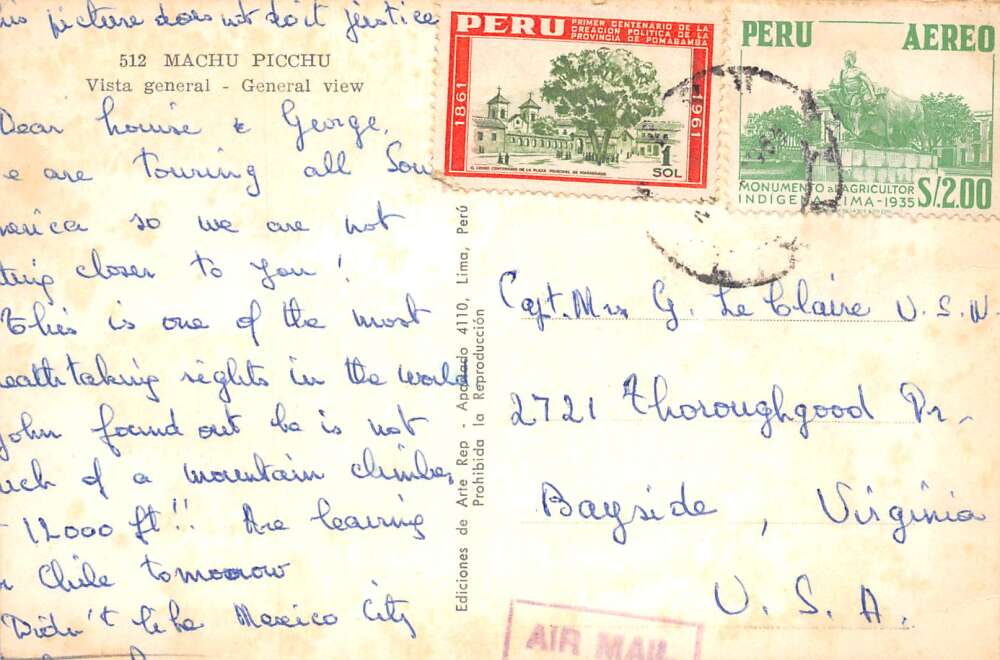 is picture does not do it justice
512 MACHU PICCHU
Vista general - General view
Dear Louise & George,
e are touring all Sou
merica so we are not
ting closer to you!
This is one of the most
reathtaking sights in the world
John found out he is not
uch of a mountain climber
12000 ft!! Are leaving
r Chile tomorrow
Didn't like Mexico City
Ediciones de Arte Rep - Apartado 4110, Lima, Perú
Prohibida la Reproducción
PERU
PRIMER CENTENARIO DE LA
CREACION POLITICA DE LA
PROVINCIA DE POMABAMBA
1861
1961
1
SOL
EL CEDRO CENTENARIO DE LA PLAZA PRINCIPAL DE POMABAMBA
PERU AEREO
MONUMENTO al AGRICULTOR
INDIGENA LIMA-1935
S/.2.00
Capt. Mrs G. Le Claire U.S.N.
2721 Thoroughgood Dr.
Bayside, Virginia
U.S.A.
AIR MAIL